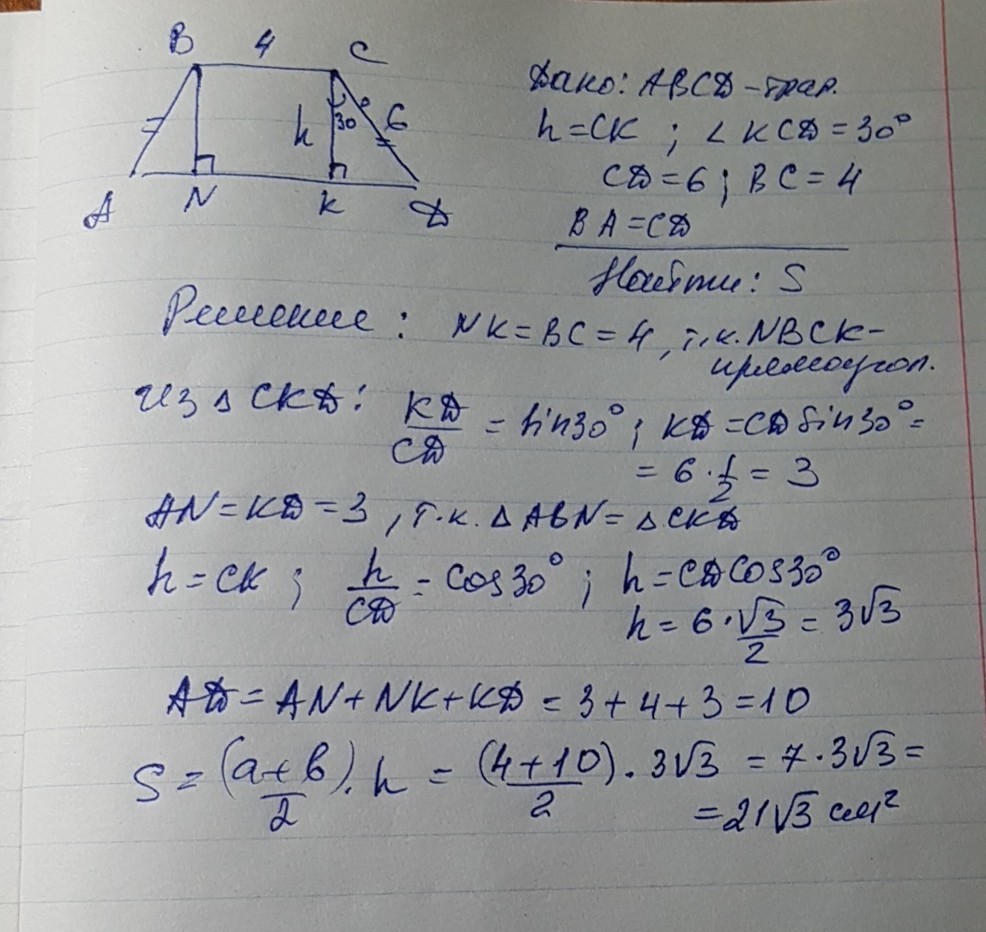 B 4 C
h 30° 6
A N K D
Дано: ABCD - трап.
h = CK ; ∠ KCD = 30°
CD = 6 ; BC = 4
BA = CD
Найти: S
Решение: NK = BC = 4, т.к. NBCK -
прямоугол.
Из △ CKD: KD/CD = sin30° ; KD = CD sin30° =
= 6 · 1/2 = 3
AN = KD = 3, т.к. △ ABN = △ CKD
h = CK ; h/CD = cos30° ; h = CD cos30°
h = 6 · √3/2 = 3√3
AD = AN + NK + KD = 3 + 4 + 3 = 10
S = (a+b)/2 · h = (4+10)/2 · 3√3 = 7 · 3√3 =
= 21√3 см²